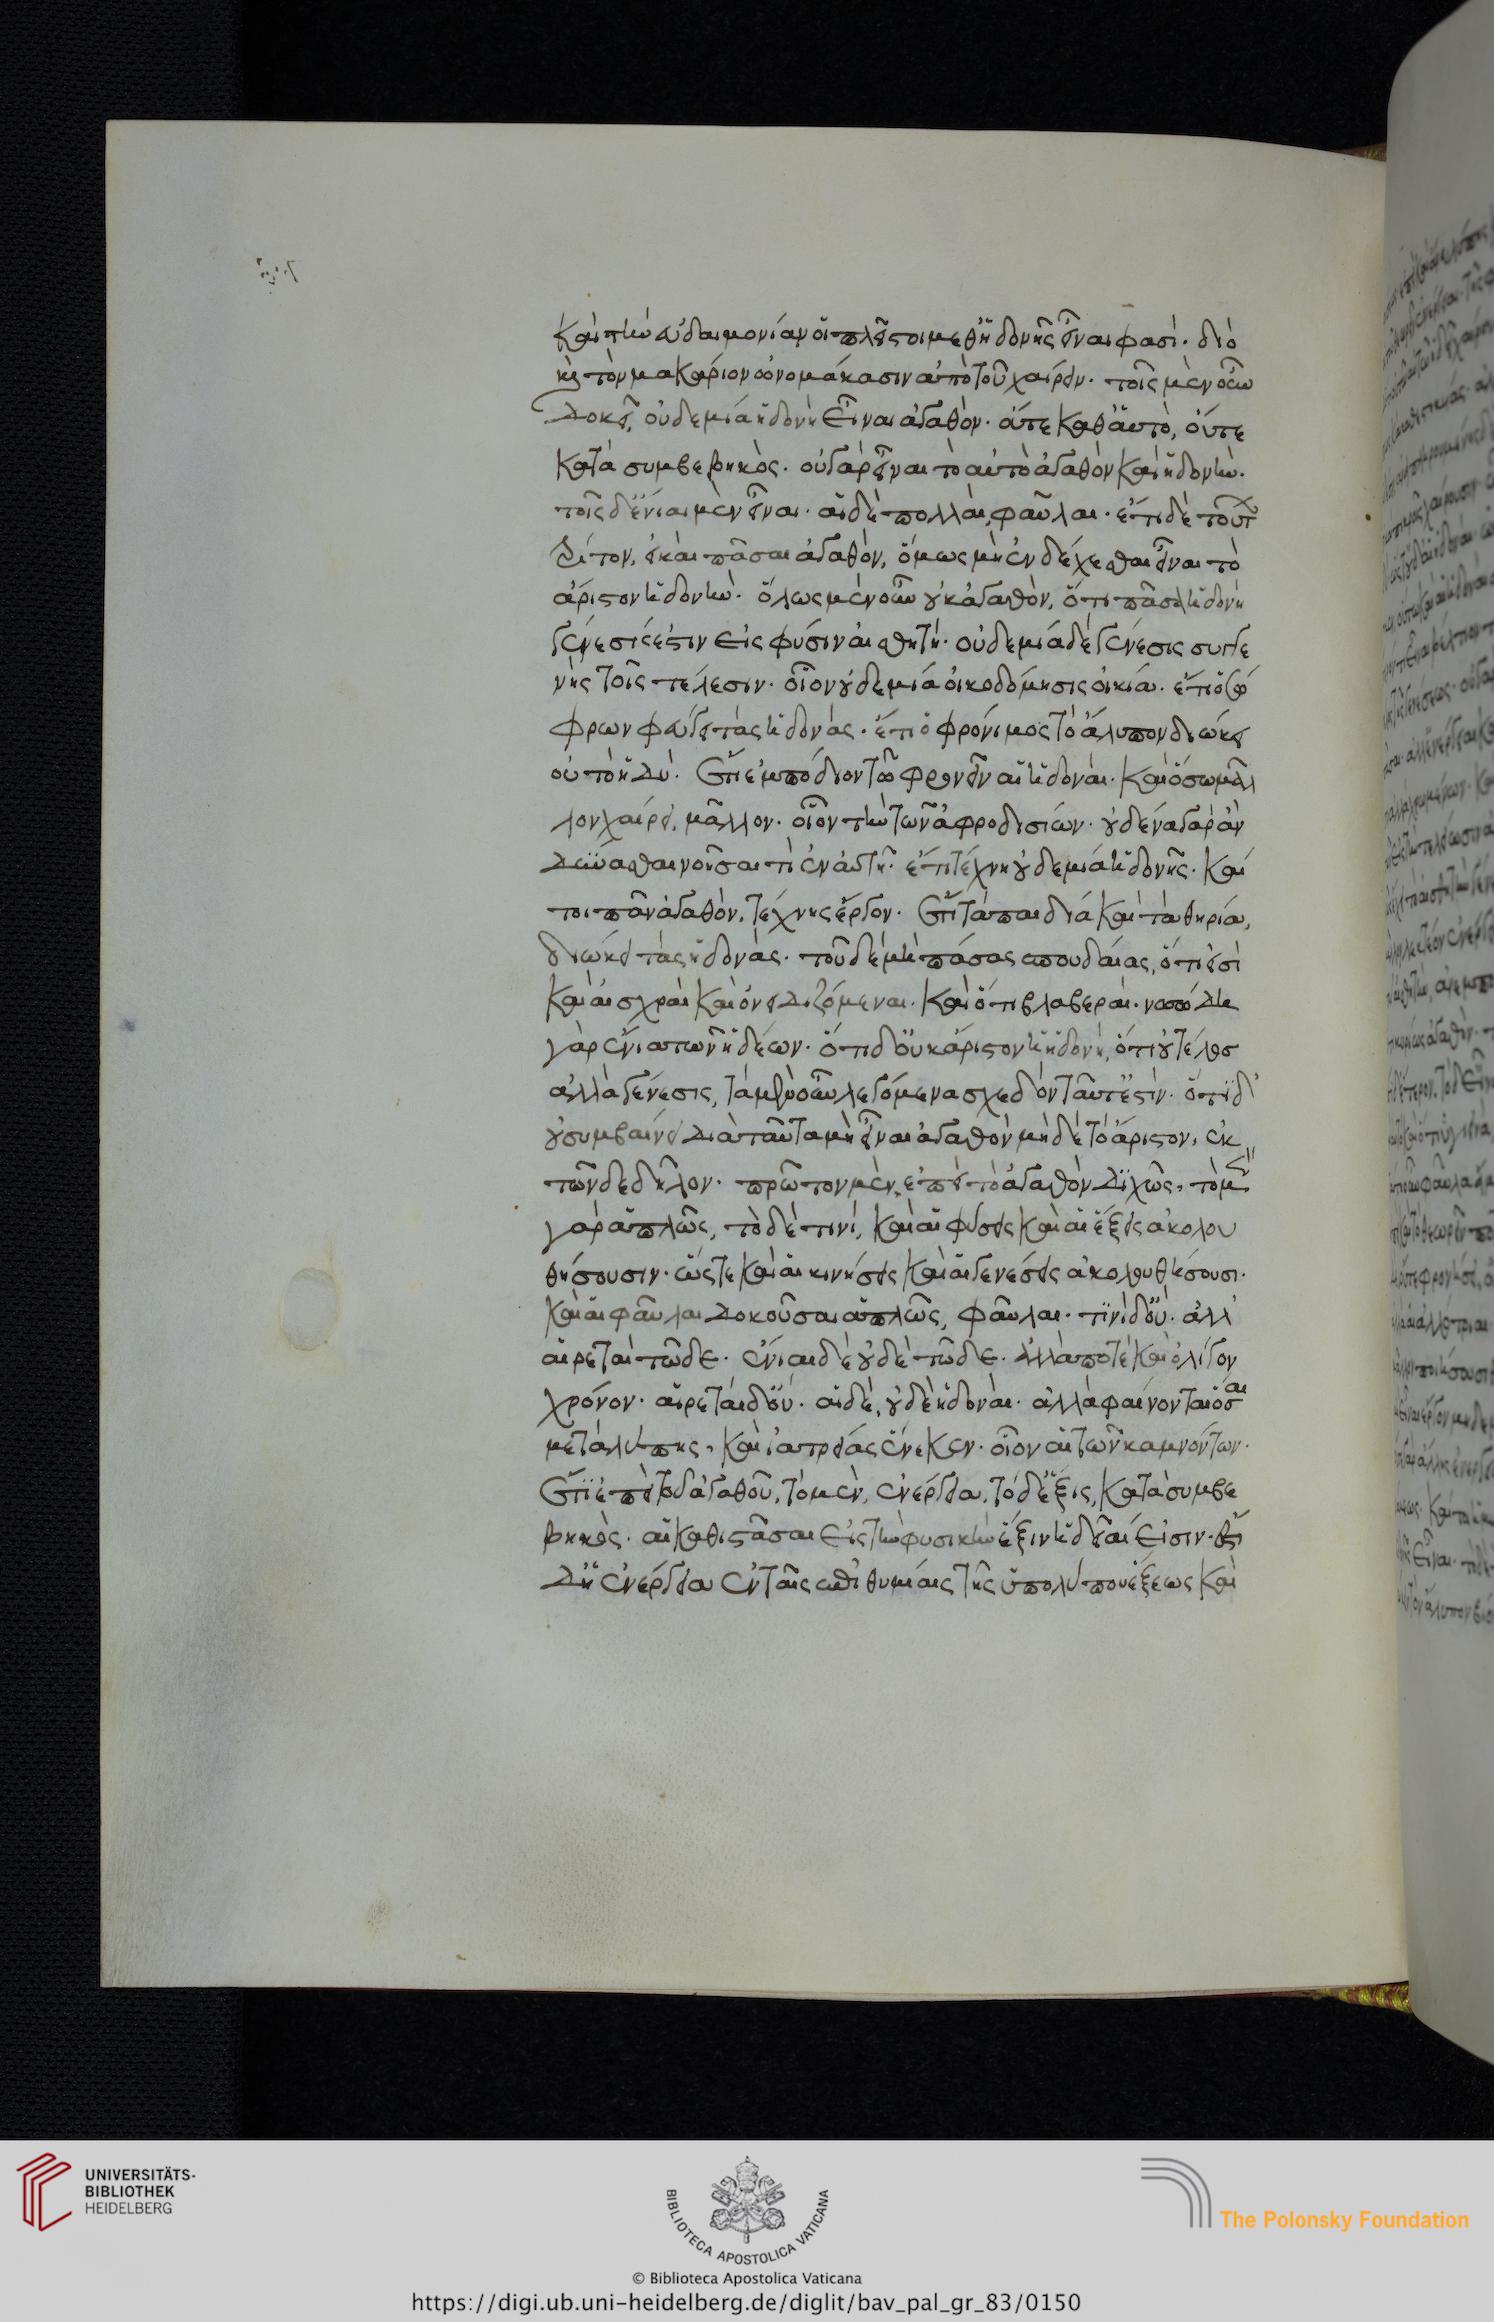 καὶ τὴν εὐδαιμονίαν οἱ πλεῖστοι μεθ' ἡδονῆς εἶναι φασί. διὸ
καὶ τὸν μακάριον ὀνομάκασιν ἀπὸ τοῦ χαίρειν. τοῖς μὲν οὖν
δοκεῖ, οὐδεμία ἡδονὴ εἶναι ἀγαθόν. οὔτε καθ' αὑτὸ, οὔτε
κατὰ συμβεβηκός. οὐ γὰρ εἶναι τὸ αὐτὸ ἀγαθὸν καὶ ἡδονήν.
τοῖς δ' ἔνιαι μὲν εἶναι. αἱ δὲ πολλαὶ, φαῦλαι. ἔτι δὲ τούτ
τρίτον, εἰ καὶ πᾶσαι ἀγαθὸν, ὅμως μὴ ἐνδέχεσθαι εἶναι τὸ
ἄριστον ἡδονήν. ὅλως μὲν οὖν οὐκ ἀγαθὸν, ὅτι πᾶσα ἡδονὴ
γένεσίς ἐστιν εἰς φύσιν αἰσθητή. οὐδεμία δὲ γένεσις συγγε
νὴς τοῖς τέλεσιν. οἷον οὐδεμία οἰκοδόμησις οἰκία. ἔτι ὁ σώ
φρων φεύγει τὰς ἡδονάς. ἔτι ὁ φρόνιμος τὸ ἄλυπον διώκει
οὐ τὸ ἡδύ. ἔτι ἐμπόδιον τῷ φρονεῖν αἱ ἡδοναί. καὶ ὅσῳ μᾶλ
λον χαίρει, μᾶλλον. οἷον τὴν τῶν ἀφροδισίων. οὐδένα γὰρ ἂν
δύνασθαι νοῆσαι τὶ ἐν αὐτῇ. ἔτι τέχνη οὐδεμία ἡδονῆς. καί
τοι πᾶν ἀγαθὸν, τέχνης ἔργον. ἔτι τὰ παιδιά καὶ τὰ θηρία,
διώκει τὰς ἡδονάς. τοῦ δὲ μὴ πάσας σπουδαίας, ὅτι εἰσὶ
καὶ αἰσχραὶ καὶ ὀνειδιζόμεναι. καὶ ὅτι βλαβεραί. νοσώδη
γὰρ ἔνια τῶν ἡδέων. ὅτι δ' οὐκ ἄριστον ἡ ἡδονὴ, ὅτι οὐ τέλος
ἀλλὰ γένεσις, τὰ μὲν οὖν λεγόμενα σχεδὸν ταῦτ' ἐστίν. ὅτι δ'
οὐ συμβαίνει διὰ ταῦτα μὴ εἶναι ἀγαθὸν μὴ δὲ τὸ ἄριστον, ἐκ
τῶνδε δῆλον. πρῶτον μὲν, ἐπεὶ τὸ ἀγαθὸν διχῶς, τὸ μὲν
γὰρ ἁπλῶς, τὸ δὲ τινί, καὶ αἱ φύσεις καὶ αἱ ἕξεις ἀκολου
θήσουσιν. ὥστε καὶ αἱ κινήσεις καὶ αἱ γενέσεις ἀκολουθήσουσι.
καὶ αἱ φαῦλαι δοκοῦσαι ἁπλῶς, φαῦλαι. τινὶ δ' οὔ. ἀλλ'
αἱρεταὶ τῷδε. ἔνιαι δὲ οὐδὲ τῷδε. ἀλλὰ ποτὲ καὶ ὀλίγον
χρόνον. αἱρεταὶ δ' οὔ. αἱ δὲ, οὐδὲ ἡδοναὶ. ἀλλὰ φαίνονται ὅσαι
μετὰ λύπης, καὶ ἰατρείας ἕνεκεν. οἷον αἱ τῶν καμνόντων.
ἔτι ἐπεὶ τοῦ ἀγαθοῦ, τὸ μὲν, ἐνέργεια, τὸ δ' ἕξις, κατὰ συμβε
βηκὸς. αἱ καθιστᾶσαι εἰς τὴν φυσικὴν ἕξιν ἡδεῖαί εἰσιν. ἔστι
δὴ ἐνέργεια ἐν ταῖς ἐπιθυμίαις τῆς ὑπολύπου ἕξεως καὶ
UNIVERSITÄTS-
BIBLIOTHEK
HEIDELBERG
BIBLIOTECA APOSTOLICA VATICANA
The Polonsky Foundation
© Biblioteca Apostolica Vaticana
https://digi.ub.uni-heidelberg.de/diglit/bav_pal_gr_83/0150